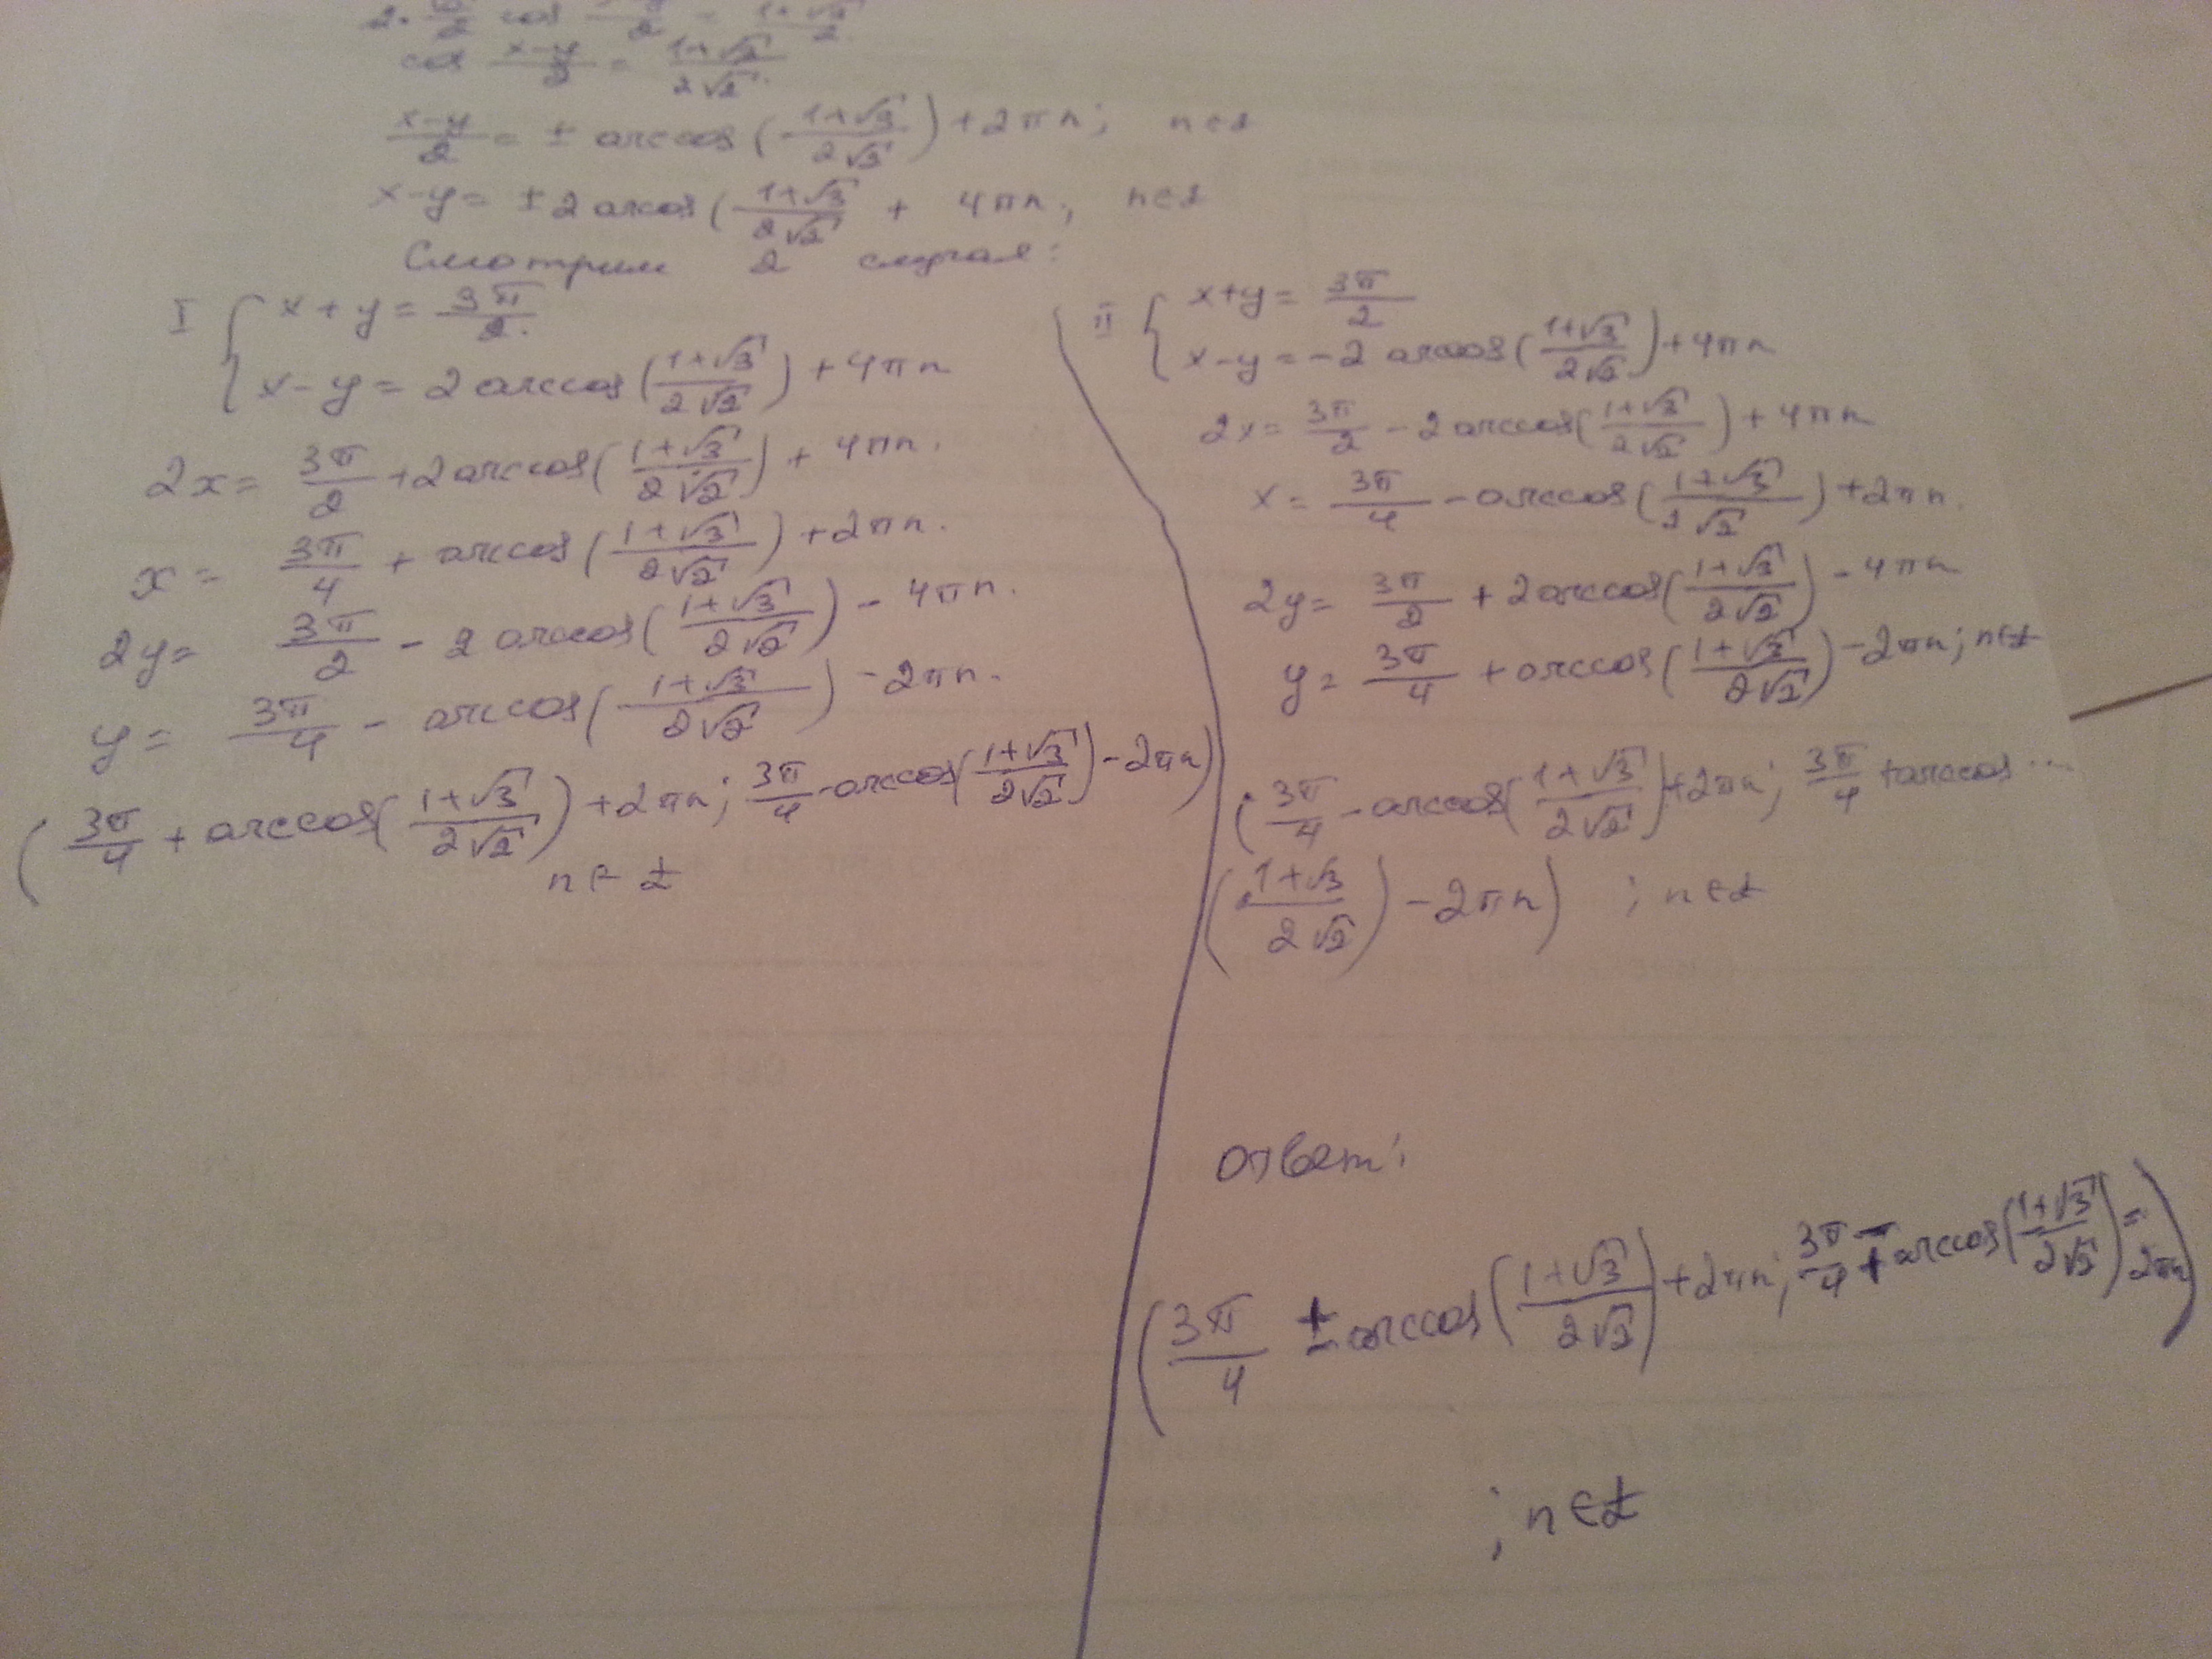 2 · √2/2 cos (x-y)/2 = (1+√3)/2
cos (x-y)/2 = (1+√3)/(2√2)
(x-y)/2 = ± arccos((1+√3)/(2√3)) + 2πn; n∈Z
x-y = ±2 arcos((1+√3)/(2√2) + 4πn; n∈Z
Смотрим 2 случая:
I { x+y = 3π/2
x-y = 2 arccos((1+√3)/(2√2)) + 4πn
2x = 3π/2 + 2 arccos((1+√3)/(2√2)) + 4πn.
x = 3π/4 + arccos((1+√3)/(2√2)) + 2πn.
2y = 3π/2 - 2 arccos((1+√3)/(2√2)) - 4πn.
y = 3π/4 - arccos((1+√3)/(2√2)) - 2πn.
(3π/4 + arccos((1+√3)/(2√2)) + 2πn; 3π/4 - arccos((1+√3)/(2√2)) - 2πn)
n∈Z
II { x+y = 3π/2
x-y = -2 arccos((1+√3)/(2√2)) + 4πn
2x = 3π/2 - 2 arccos((1+√3)/(2√2)) + 4πn
x = 3π/4 - arccos((1+√3)/(2√2)) + 2πn.
2y = 3π/2 + 2 arccos((1+√3)/(2√2)) - 4πn
y = 3π/4 + arccos((1+√3)/(2√2)) - 2πn; n∈Z
(3π/4 - arccos((1+√3)/(2√2)) + 2πn; 3π/4 + arccos ...
((1+√3)/(2√2)) - 2πn) ; n∈Z
ответ:
(3π/4 ± arccos((1+√3)/(2√2)) + 2πn; 3π/4 ∓ arccos((1+√3)/(2√2)) - 2πn)
; n∈Z